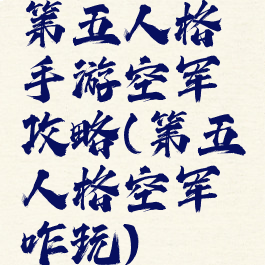 第五人格
手游空军
攻略(第五
人格空军
咋玩)